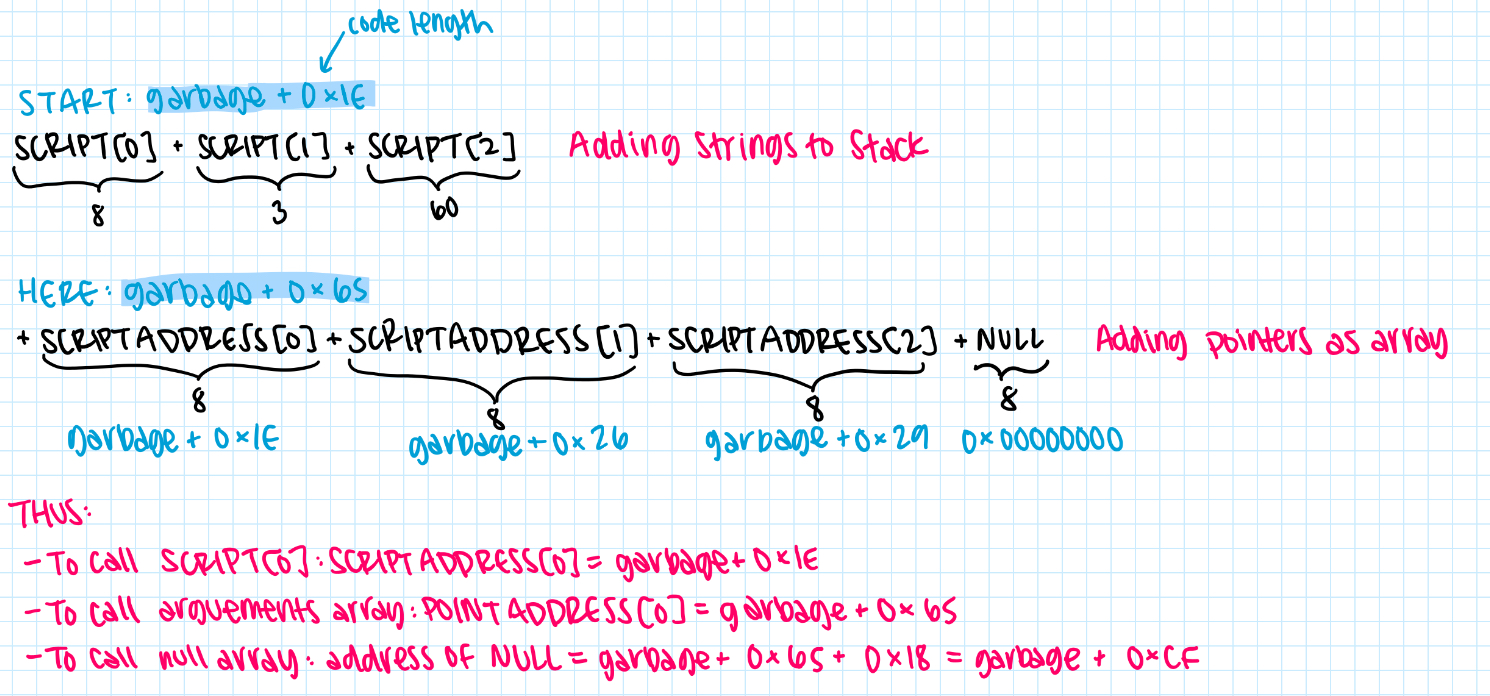 code length
START: garbage + 0x1E
SCRIPT[0] + SCRIPT[1] + SCRIPT[2] Adding strings to Stack
8 3 60
HERE: garbage + 0x65
+ SCRIPTADDRESS[0] + SCRIPTADDRESS[1] + SCRIPTADDRESS[2] + NULL Adding pointers as array
8 8 8 8
garbage + 0x1E garbage + 0x26 garbage + 0x29 0x00000000
THUS:
- To call SCRIPT[0]: SCRIPTADDRESS[0] = garbage + 0x1E
- To call arguements array: POINTADDRESS[0] = garbage + 0x65
- To call null array: address of NULL = garbage + 0x65 + 0x18 = garbage + 0xCF